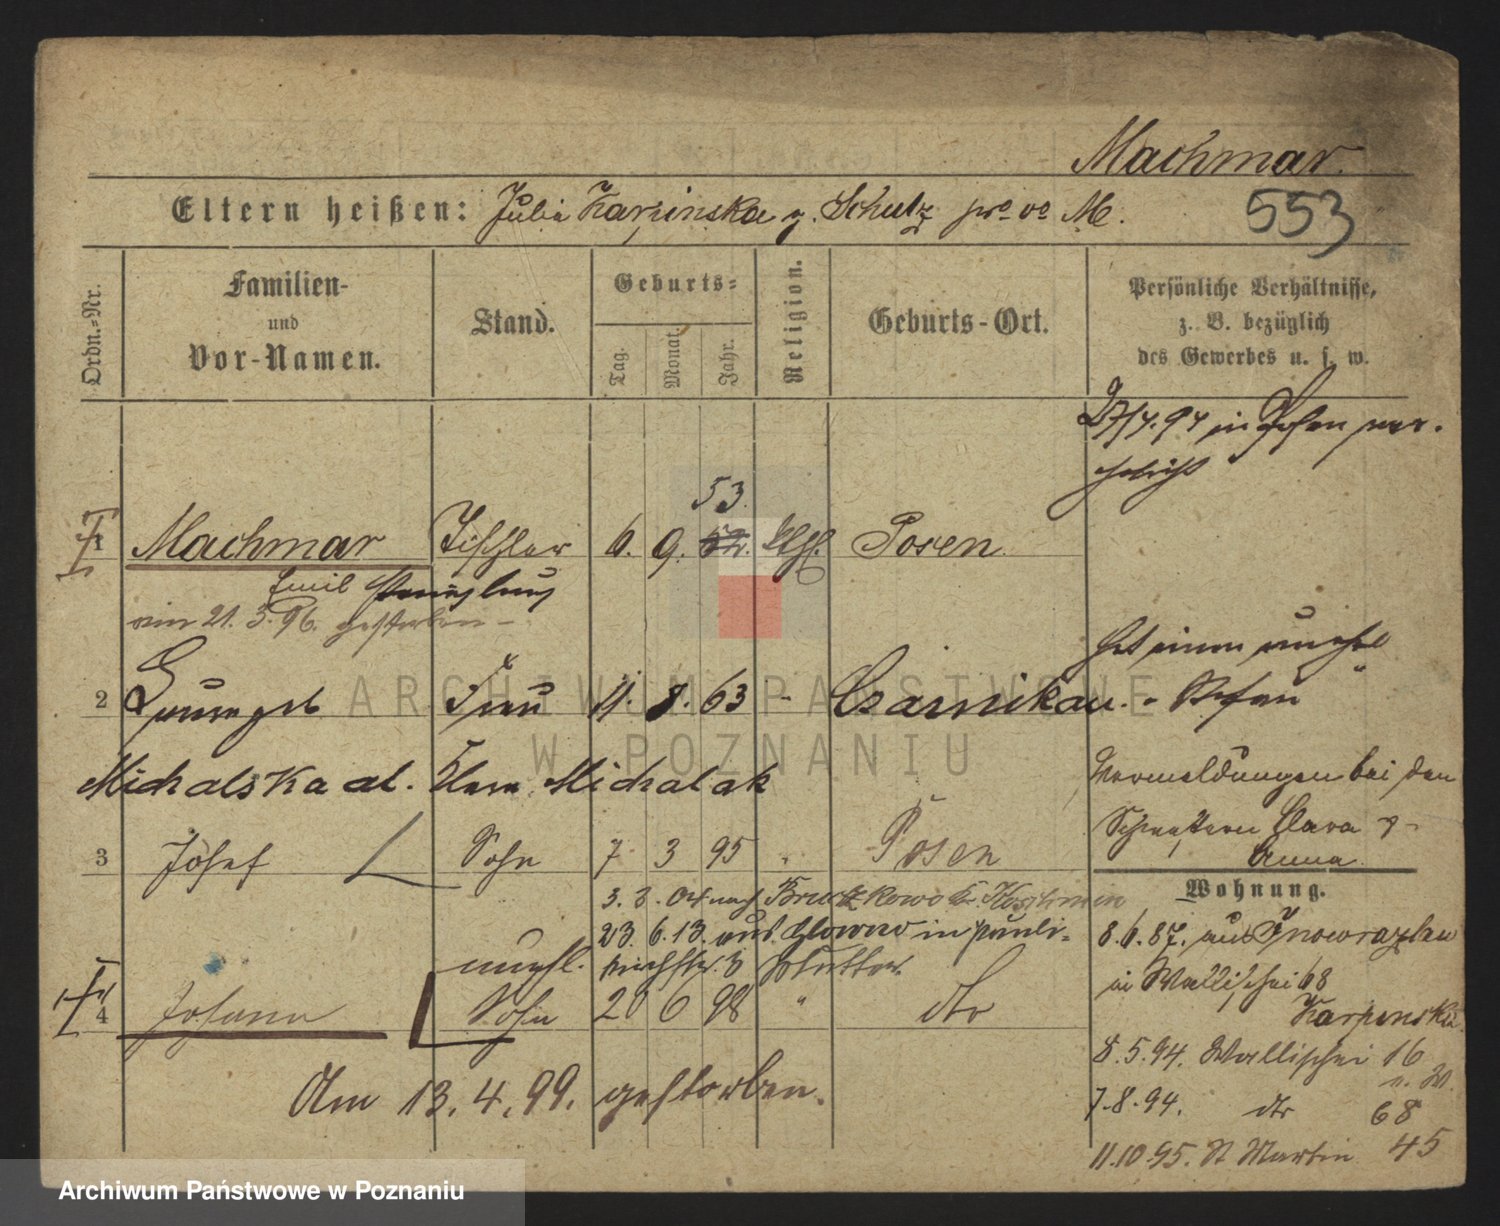 Machmar.
Eltern heißen: Julia Karpinska g. Schulz pro vo M.
553
Ordn.-Nr.
Familien-
und
Vor-Namen.
Stand.
Geburts-
Tag.
Monat.
Jahr.
Religion.
Geburts-Ort.
Persönliche Verhältnisse,
z. B. bezüglich
des Gewerbes u. s. w.
27/4.94 in Posen ver-
ehelicht
53.
1 Machmar Tischler 6. 9. Posen
Emil
am 21. 3. 96. gestorben -
Hat einen unehel
2 Frau 11. 8. 63 - Czarnikau. - Stefan "
Michalska al. Michalak
Vermeldungen bei den
Schwestern Clara &
Anna
3 Josef Sohn 7 3 95 " Posen
Wohnung.
3. 3. 04 nach
23. 6. 13. aus Glowno in Pauli-
kirchstr. 3
8.6.87. aus Inowrazlaw
in Wallischei 68
Karpinska
unehl.
4 Johann Sohn 20 6 98 " dto
8.5.94. Wallischei 16
7.8.94. dto 68
Am 13. 4. 99. gestorben.
11.10.95. St Martin 45
ARCHIWUM PAŃSTWOWE
W POZNANIU
Archiwum Państwowe w Poznaniu